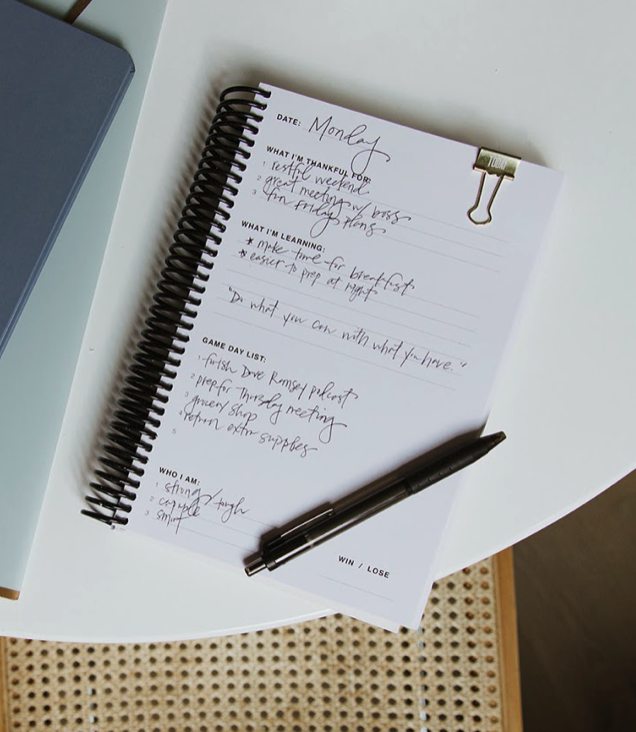 DATE: Monday
WHAT I'M THANKFUL FOR:
1 restful weekend
2 great meeting w/ boss
3 fun friday plans
WHAT I'M LEARNING:
* make time for breakfast
* easier to prep at night
"Do what you can with what you have."
GAME DAY LIST:
1 finish Dave Ramsey podcast
2 prep for Thursday meeting
3 grocery shop
4 return extra supplies
5
WHO I AM:
1 strong / tough
2 capable
3 smart
WIN / LOSE